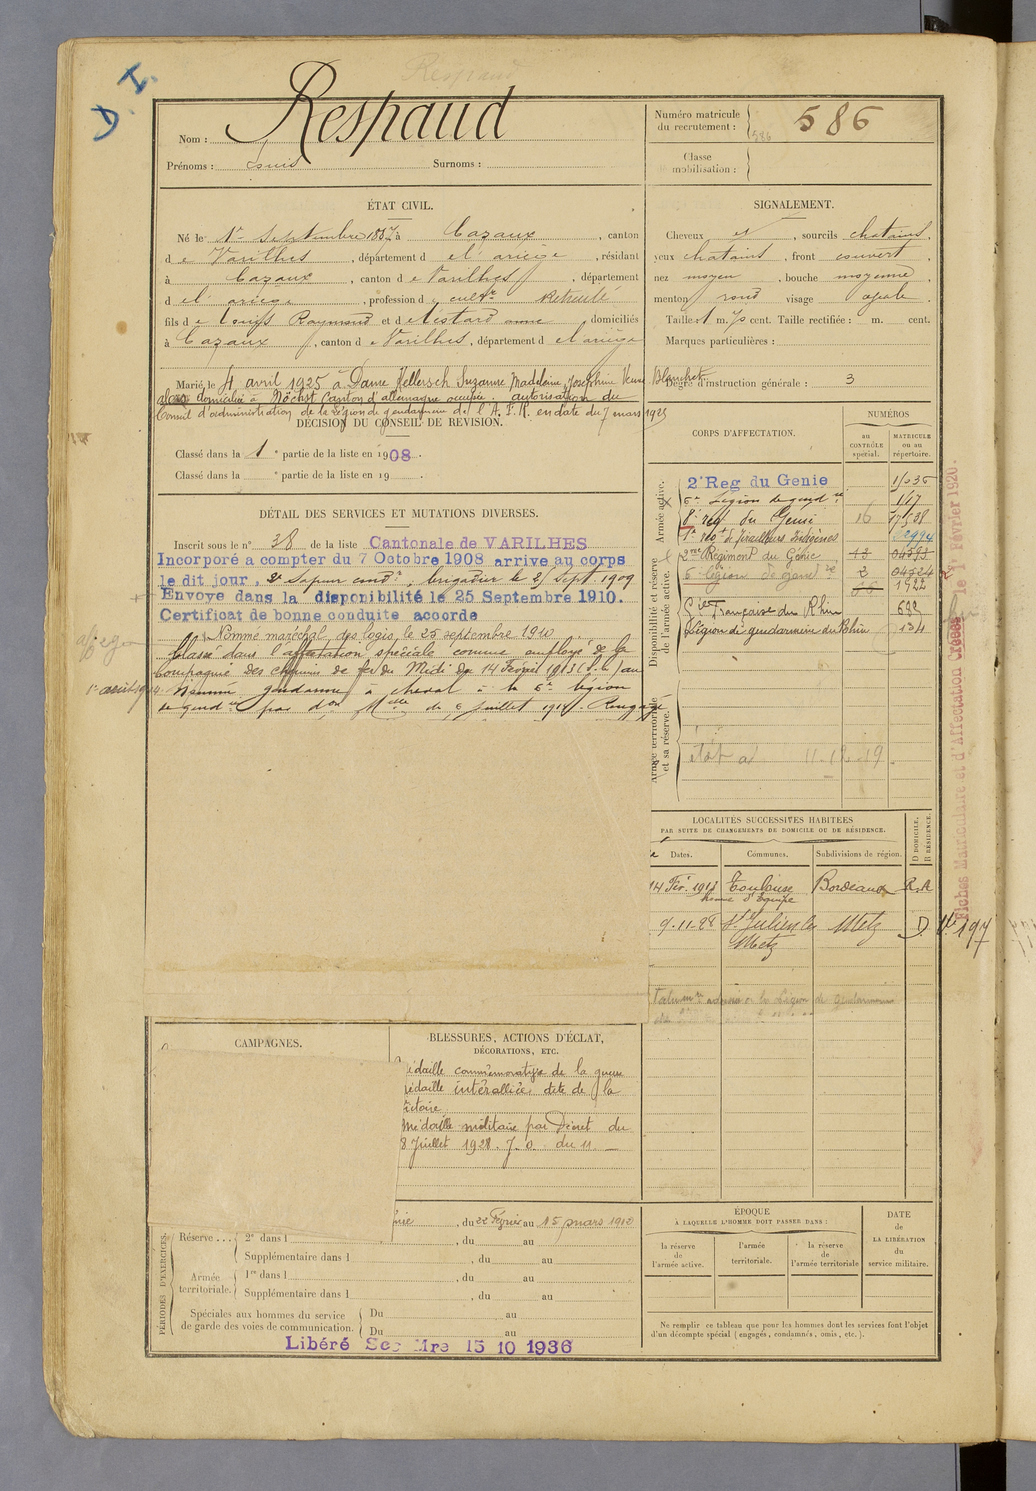 D. I.
Respaud
Nom : Respaud
Prénoms : Louis Surnoms :
Numéro matricule du recrutement : 586
586
Classe mobilisation :
ÉTAT CIVIL.
Né le 1er Septembre 1887 à Cazaux, canton
de Varilhes, département de l'ariège, résidant
à Cazaux, canton de Varilhes, département
de l'ariège, profession de cultr
fils de Louis Raymond et de Restard anne, domiciliés
à Cazaux, canton de Varilhes, département de l'ariège
Marié le 4 avril 1925 à Dame Hellersch Suzanne Madeleine Joséphine Veuve Blanchet
domiciliée à Höchst canton d'allemagne occupée. autorisation du
Conseil d'administration de la Légion de gendarmerie de l'A.F.R. en date du 7 mars 1925
DÉCISION DU CONSEIL DE REVISION.
Classé dans la 1e partie de la liste en 1908.
Classé dans la e partie de la liste en 19 .
DÉTAIL DES SERVICES ET MUTATIONS DIVERSES.
Inscrit sous le n° 38 de la liste Cantonale de VARILHES
Incorporé à compter du 7 Octobre 1908 arrivé au corps
le dit jour, 2e Sapeur condr, brigadier le 25 Sept. 1909
Envoyé dans la disponibilité le 25 Septembre 1910.
Certificat de bonne conduite accordé
Nommé maréchal des logis, le 25 septembre 1910
Classé dans l'affectation spéciale comme employé de la
Compagnie des chemins de fer du Midi du 14 Février 1913 au
1er avril 1914. Nommé gendarme à cheval à la 6e légion
de gendrie par don Mlle du 6 juillet 1914. Rengagé
SIGNALEMENT.
Cheveux et, sourcils chatains,
yeux chatains, front couvert
nez moyen, bouche moyenne
menton rond visage ovale.
Taille : 1 m. 70 cent. Taille rectifiée : m. cent.
Marques particulières :
Degré d'instruction générale : 3
CORPS D'AFFECTATION.
NUMÉROS
au CONTRÔLE spécial.
MATRICULE ou au répertoire.
Armée active.
2e Reg du Génie
6e Légion de gendrie 167
1e rég du Génie 16 17538
1e régt de Tirailleurs Indigènes
Disponibilité et réserve de l'armée active.
2me Régiment du Génie 13
6e légion de gendrie 2 04524
1922
Cie Française du Rhin 688
Légion de gendarmerie du Rhin 134
Armée territoriale et sa réserve.
état a 11.12.19
Fiches Matriculaire et d'Affectation Créées le 1er Février 1920.
LOCALITÉS SUCCESSIVES HABITÉES
PAR SUITE DE CHANGEMENTS DE DOMICILE OU DE RÉSIDENCE.
Dates. Communes. Subdivisions de région. D DOMICILE. R RÉSIDENCE.
14 Fév. 1913 Toulouse Bordeaux R.A
homme d'Equipe
9-11-28 St Julien les Metz Metz D
CAMPAGNES.
BLESSURES, ACTIONS D'ÉCLAT,
DÉCORATIONS, ETC.
édaille commémorative de la guerre
édaille interalliée, dite de la
ictoire
Médaille militaire par Décret du
8 Juillet 1928. J.O. du 11
PÉRIODES D'EXERCICES.
nie, du 22 Février au 15 mars 1912
Réserve ... 2e dans l , du au
Supplémentaire dans l , du au
Armée territoriale. 1re dans l , du au
Supplémentaire dans l , du au
Spéciales aux hommes du service de garde des voies de communication. Du au
Du au
Libéré Ser Mre 15 10 1936
ÉPOQUE
À LAQUELLE L'HOMME DOIT PASSER DANS :
la réserve de l'armée active.
l'armée territoriale.
la réserve de l'armée territoriale
DATE de LA LIBÉRATION du service militaire.
Ne remplir ce tableau que pour les hommes dont les services font l'objet
d'un décompte spécial (engagés, condamnés, omis, etc.).